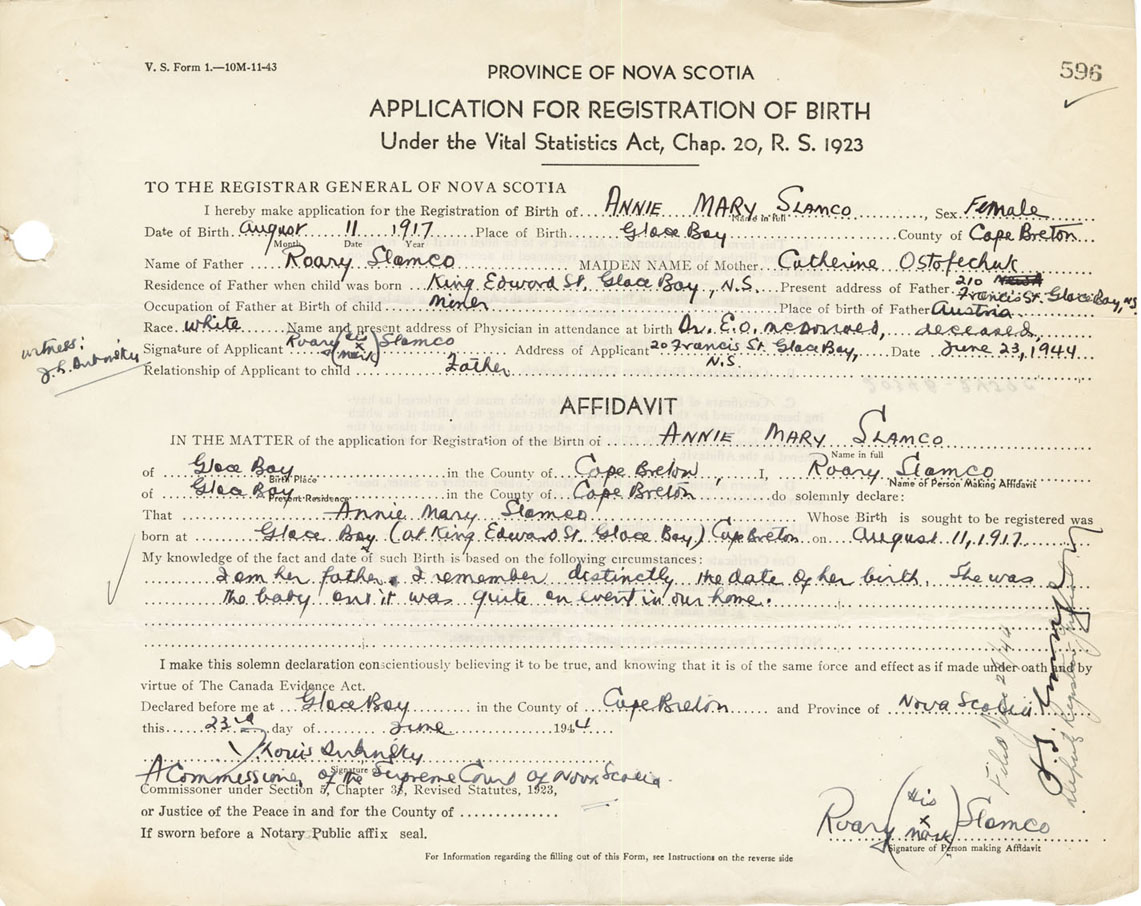 V. S. Form 1.—10M-11-43
PROVINCE OF NOVA SCOTIA
596
APPLICATION FOR REGISTRATION OF BIRTH
Under the Vital Statistics Act, Chap. 20, R. S. 1923
TO THE REGISTRAR GENERAL OF NOVA SCOTIA
I hereby make application for the Registration of Birth of ANNIE MARY SLAMCO, Sex Female
Name in full
Date of Birth August 11 1917 Place of Birth Glace Bay County of Cape Breton
Month Date Year
Name of Father Roary Slamco MAIDEN NAME of Mother Catherine Ostofechuk
Residence of Father when child was born King Edward St. Glace Bay, N.S. Present address of Father 210 Francis St. Glace Bay, NS
Occupation of Father at Birth of child miner Place of birth of Father Austria
Race white Name and present address of Physician in attendance at birth Dr. E.O. deceased
witness:
Signature of Applicant Roary (his x mark) Slamco Address of Applicant 20 Francis St. Glace Bay, N.S. Date June 23, 1944
Relationship of Applicant to child Father
AFFIDAVIT
IN THE MATTER of the application for Registration of the Birth of ANNIE MARY SLAMCO
Name in full
of Glace Bay in the County of Cape Breton, I, Roary Slamco
Birth Place Name of Person Making Affidavit
of Glace Bay in the County of Cape Breton do solemnly declare:
Present Residence
That Annie Mary Slamco Whose Birth is sought to be registered was
born at Glace Bay (at King Edward St. Glace Bay) Cape Breton on August 11, 1917
My knowledge of the fact and date of such Birth is based on the following circumstances:
I am her father. I remember distinctly the date of her birth. She was
the baby and it was quite an event in our home.
I make this solemn declaration conscientiously believing it to be true, and knowing that it is of the same force and effect as if made under oath and by
virtue of The Canada Evidence Act.
Declared before me at Glace Bay in the County of Cape Breton and Province of Nova Scotia
this 23rd day of June 1944
Louis Dubinsky
Signature
A Commissioner of the Supreme Court of Nova Scotia
Commissioner under Section 5, Chapter 3, Revised Statutes, 1923,
or Justice of the Peace in and for the County of
If sworn before a Notary Public affix seal.
Roary (his x mark) Slamco
Signature of Person making Affidavit
For Information regarding the filling out of this Form, see Instructions on the reverse side
Filed June
Deputy Registrar